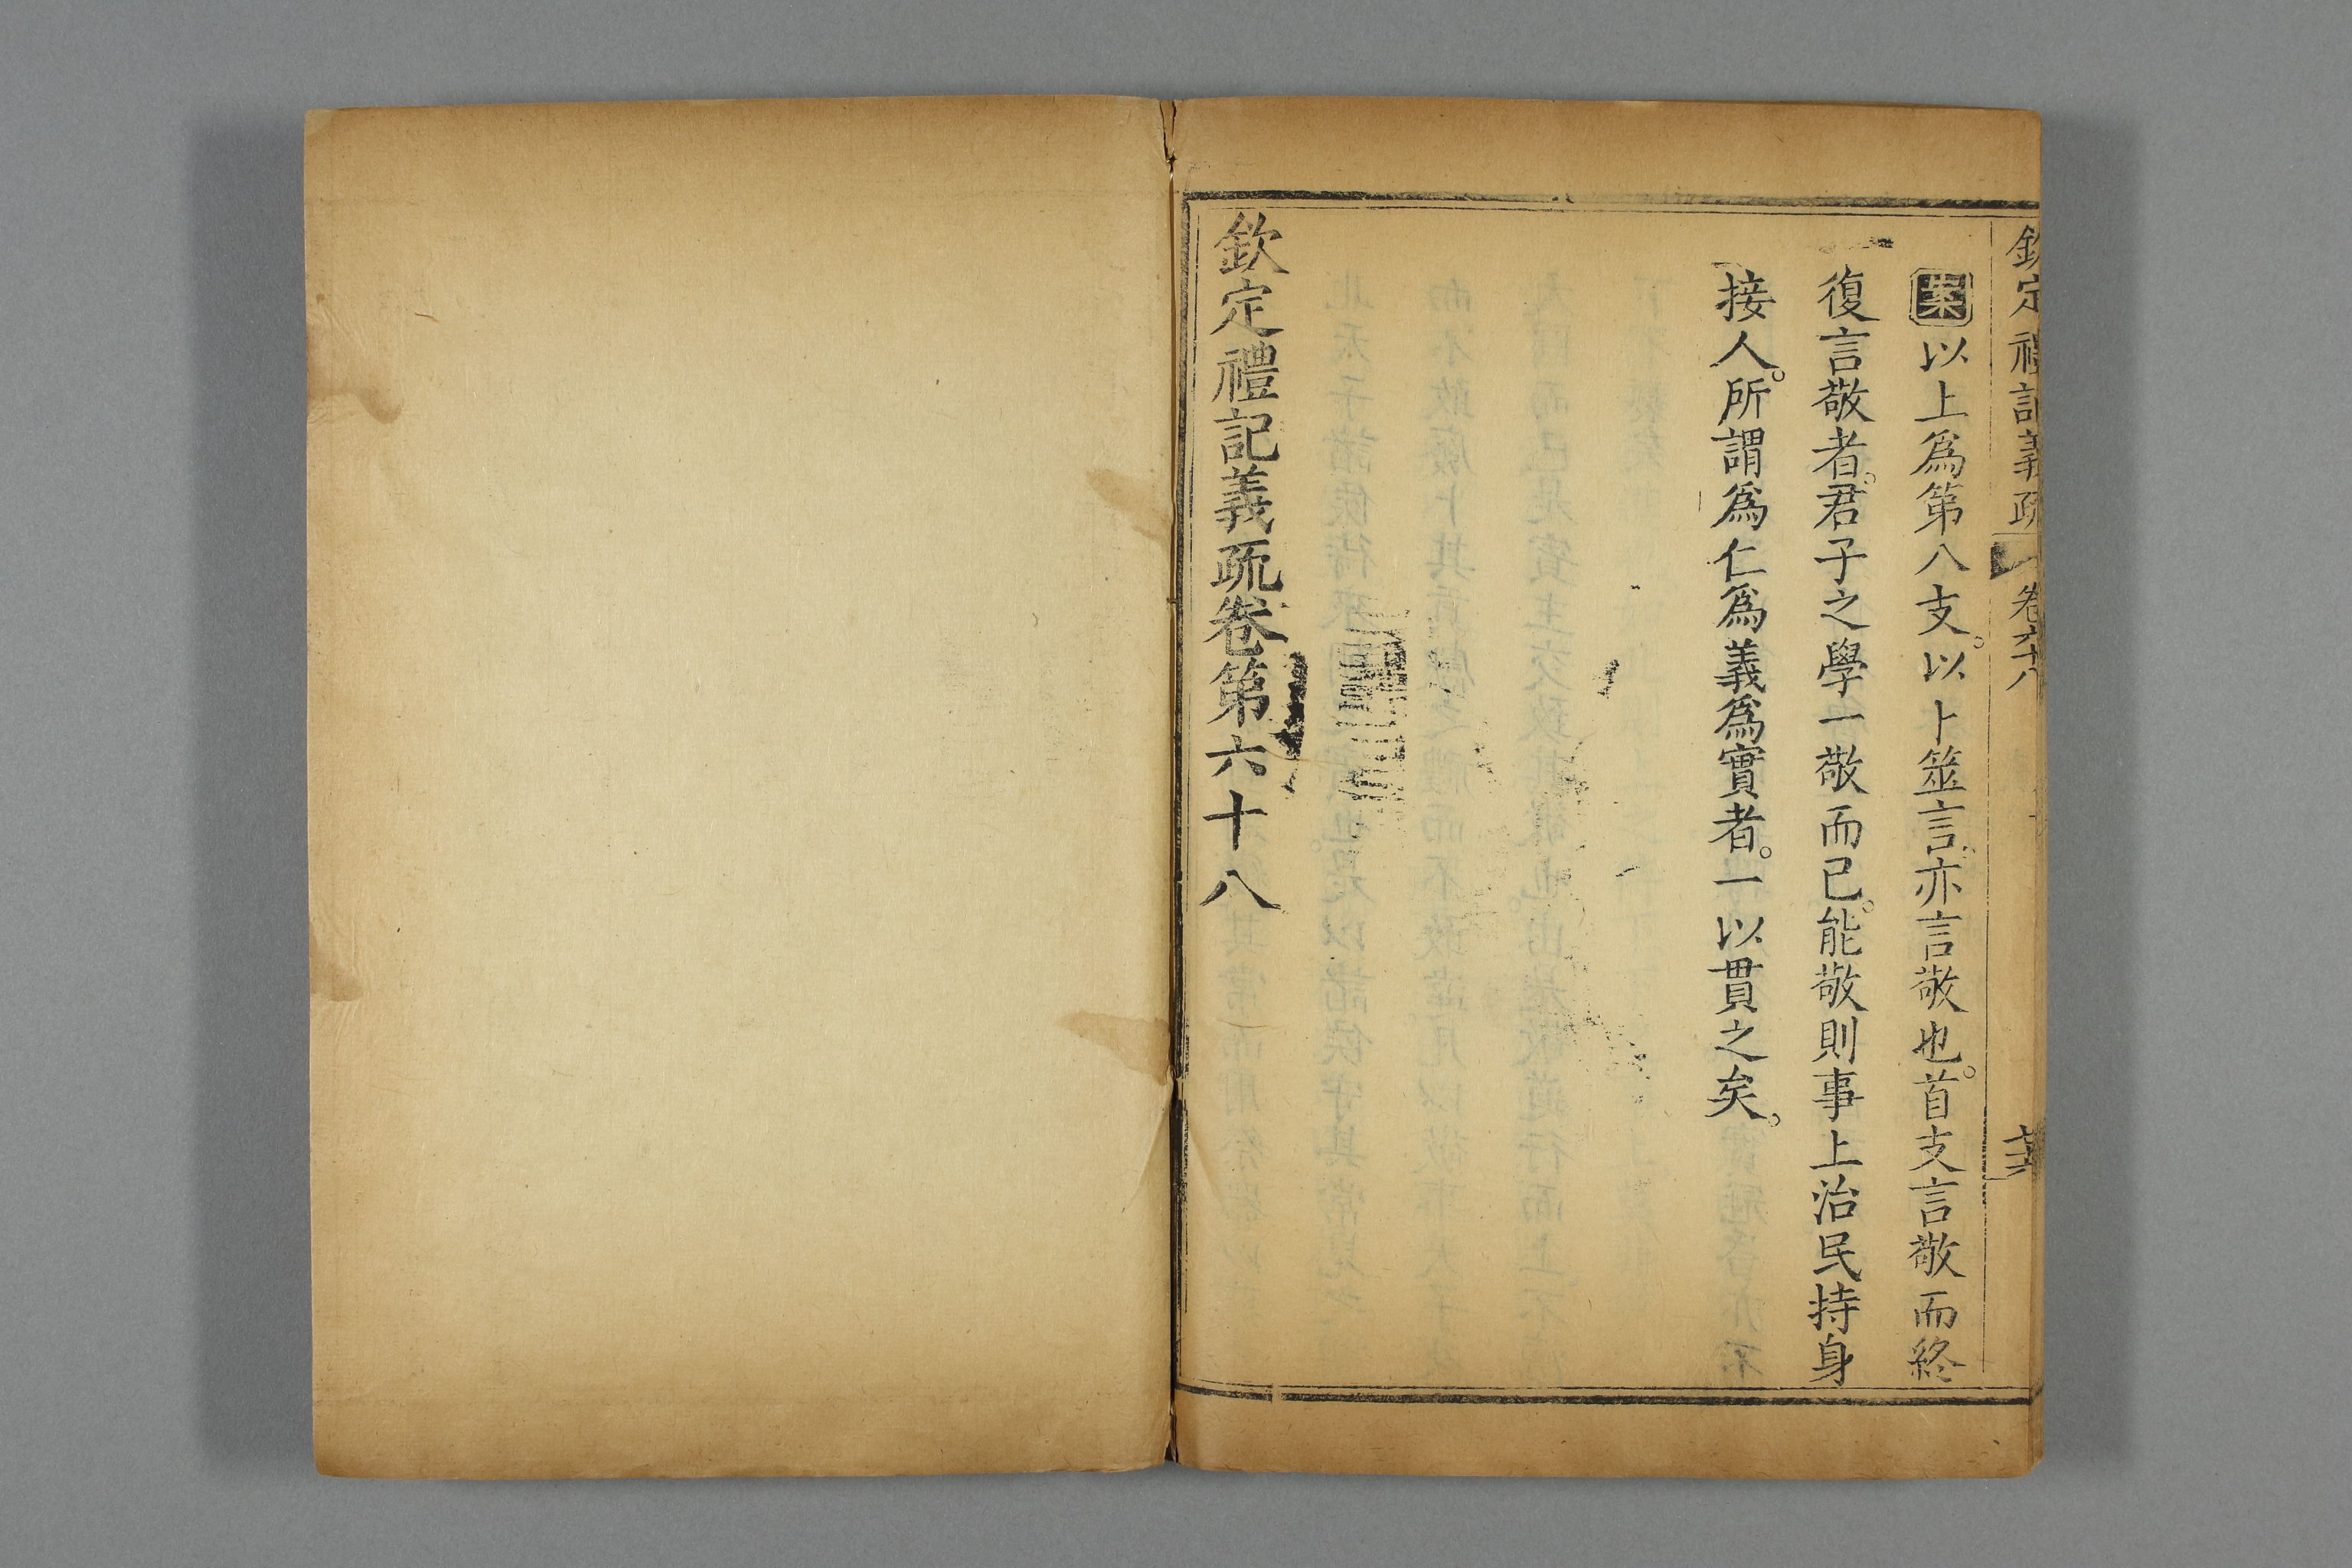 欽定禮記義疏 卷六十八
案以上爲第八支。以卜筮言亦言敬也。首支言敬而終
復言敬者。君子之學一敬而已。能敬則事上治民持身
接人。所謂爲仁爲義爲實者。一以貫之矣。
欽定禮記義疏卷第六十八